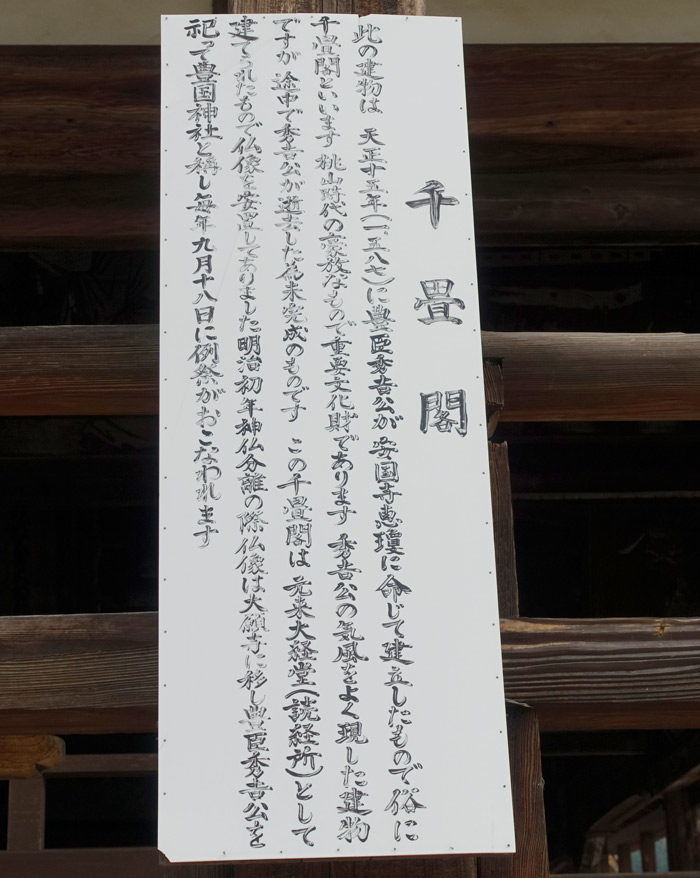 千畳閣
此の建物は 天正十五年(一五八七)に豊臣秀吉公が 安国寺恵瓊に命じて建立したもので俗に
千畳閣といいます 桃山時代の豪放なもので重要文化財であります 秀吉公の気風をよく現した建物
ですが 途中で秀吉公が逝去した為未完成のものです この千畳閣は 元来大経堂(読経所)として
建てられたもので仏像を安置してありました明治初年神仏分離の際仏像は大願寺に移し豊臣秀吉公を
祀って豊国神社と称し毎年 九月十八日に例祭がおこなわれます